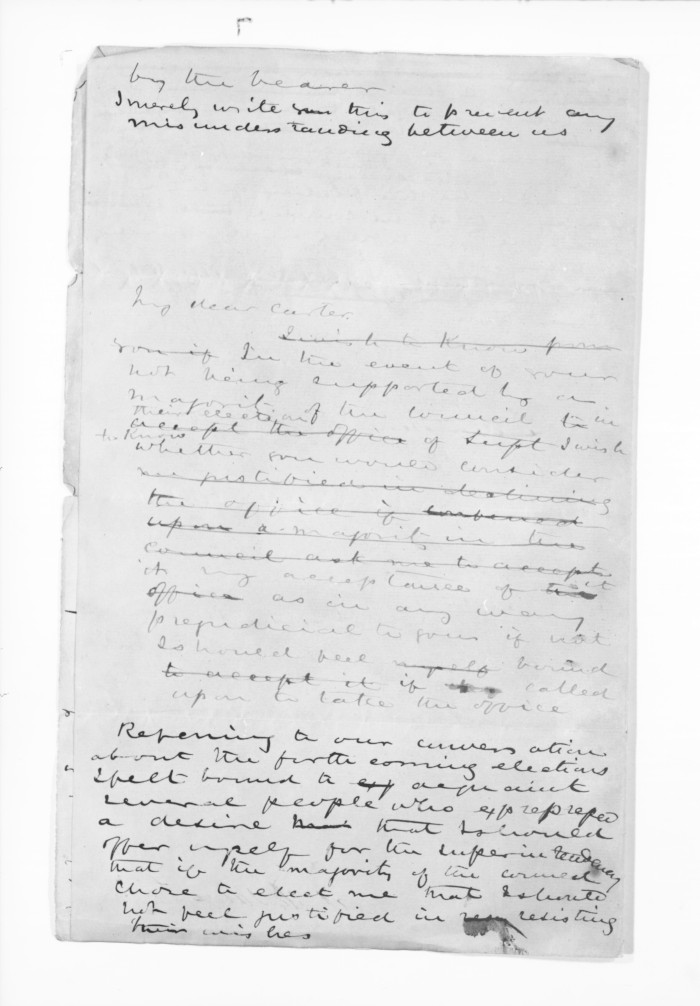 by the bearer
I merely write this to prevent any
misunderstanding between us
My dear Carter
I wish to know from
you if In the event of your
not being supported by a
majority of the council in
their election
accept the office of Supt I wish
to know
whether you would consider
me justified in declining
the office if
upon a majority in the
council ask me to accept
it my acceptance of it
office as in any way
prejudicial to yours if not
I should feel myself bound
to accept it if called
upon to take the office
Referring to our conversation
about the forthcoming elections
I felt bound to acquaint
several people who expressed
a desire that I should
offer myself for the superintendency
that if the majority of the council
chose to elect me that I should
not feel justified in resisting
their wishes